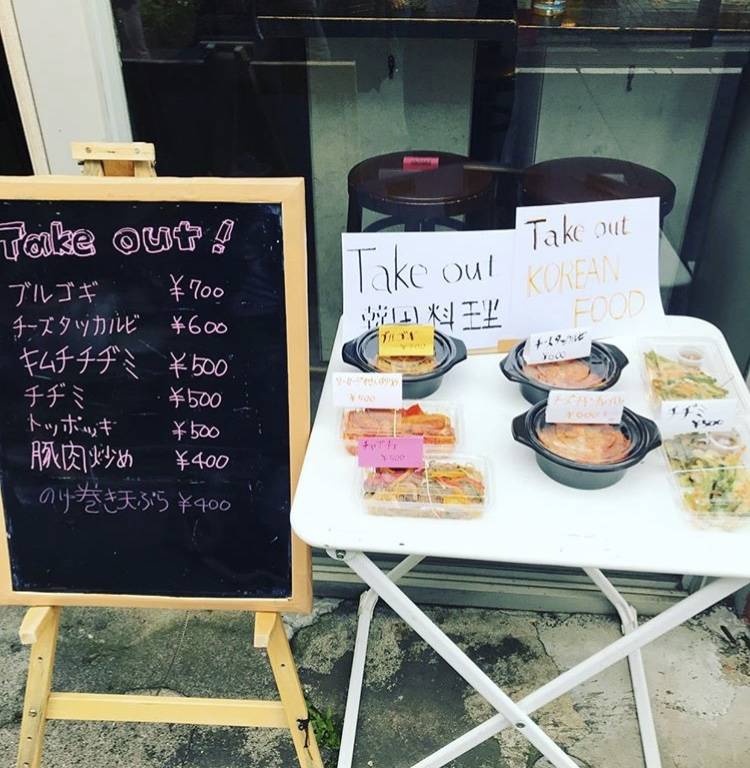 Take out!
ブルゴギ ¥700
チーズタッカルビ ¥600
キムチチヂミ ¥500
チヂミ ¥500
トッポッキ ¥500
豚肉炒め ¥400
のり巻き天ぷら ¥400
Take out
韓国料理
Take out
KOREAN
FOOD
ブルゴギ
¥600
¥500
チャプチェ
¥500
チヂミ
¥500